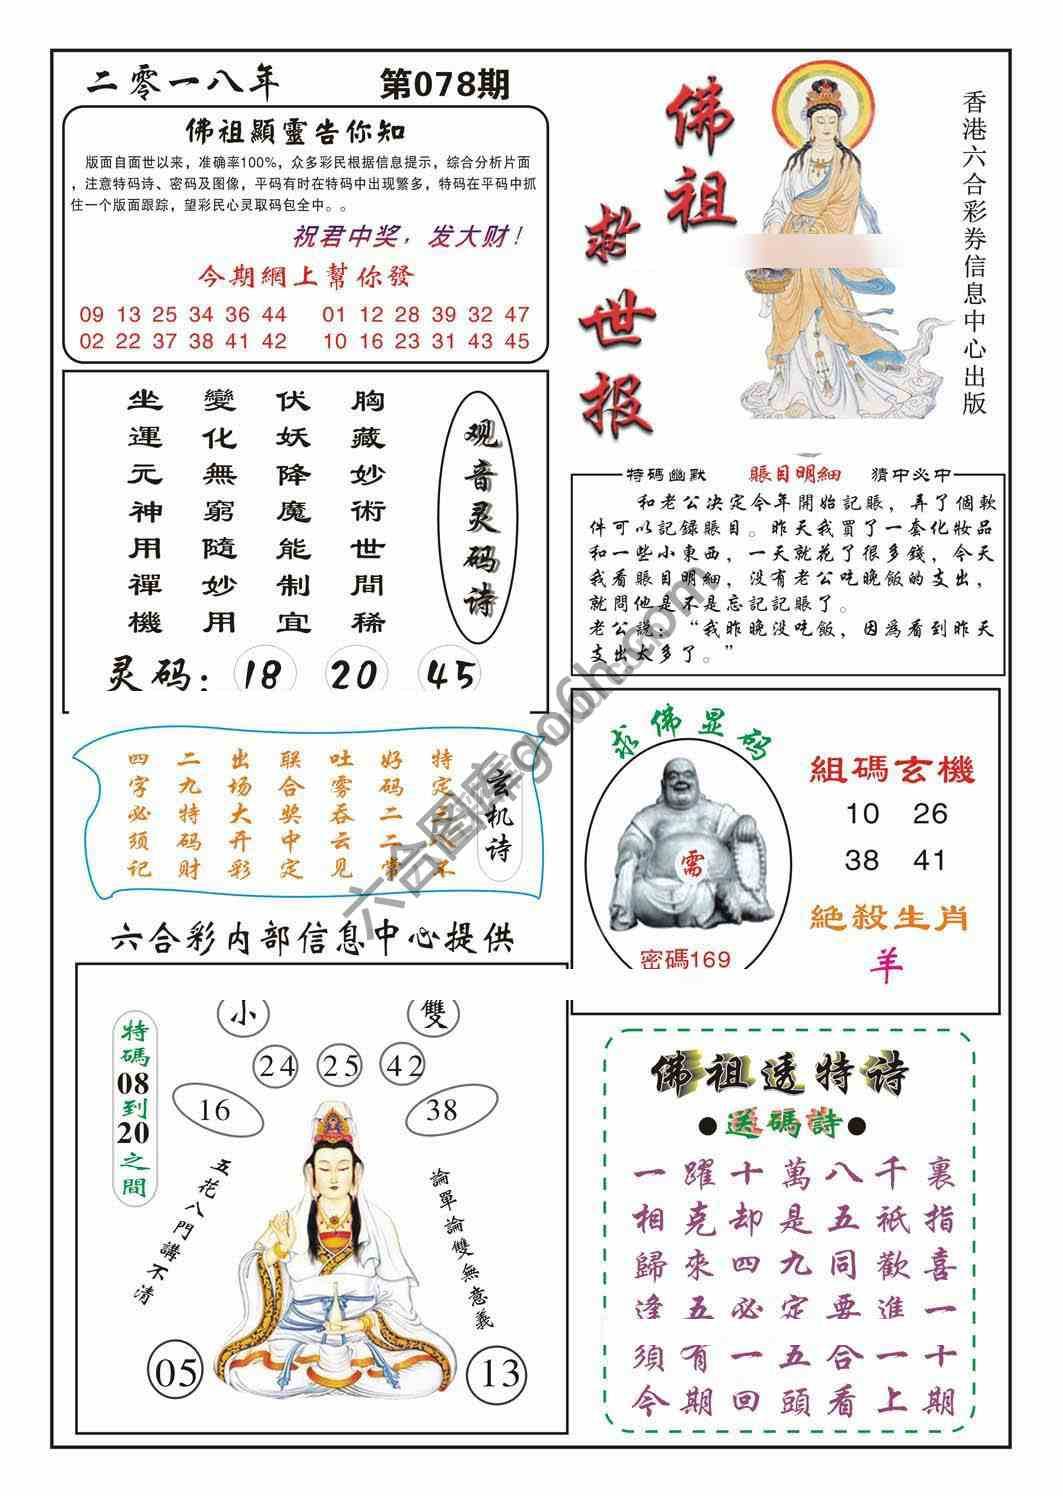 二零一八年 第078期
佛祖顯靈告你知
版面自面世以来，准确率100%，众多彩民根据信息提示，综合分析片面
，注意特码诗、密码及图像，平码有时在特码中出现繁多，特码在平码中抓
住一个版面跟踪，望彩民心灵取码包全中。。
祝君中奖，发大财！
今期網上幫你發
09 13 25 34 36 44 01 12 28 39 32 47
02 22 37 38 41 42 10 16 23 31 43 45
佛祖
救世报
香港六合彩券信息中心出版
观音灵码诗
胸藏妙術世間稀
伏妖降魔能制宜
變化無窮隨妙用
坐運元神用禪機
灵码：18 20 45
特碼幽默 賬目明細 猜中必中
和老公决定今年開始記賬，弄了個軟
件可以記錄賬目。昨天我買了一套化妝品
和一些小東西，一天就花了很多錢，今天
我看賬目明細，没有老公吃晚飯的支出，
就問他是不是忘記記賬了。
老公説：“我昨晚没吃飯，因為看到昨天
支出太多了。”
玄机诗
特定之八不
好码二二常
吐雾吞云见
联合奖中定
出场大开彩
二九特码财
四字必须记
求佛显码
需
密碼169
組碼玄機
10 26
38 41
絕殺生肖
羊
六合彩内部信息中心提供
小 雙
24 25 42
16 38
特碼08到20之間
五花八門講不清
論單論雙無意義
05 13
佛祖透特诗
●送碼詩●
一躍十萬八千裏
相克却是五祇指
歸來四九同歡喜
逢五必定要進一
須有一五合一十
今期回頭看上期
六合图库go6h.com